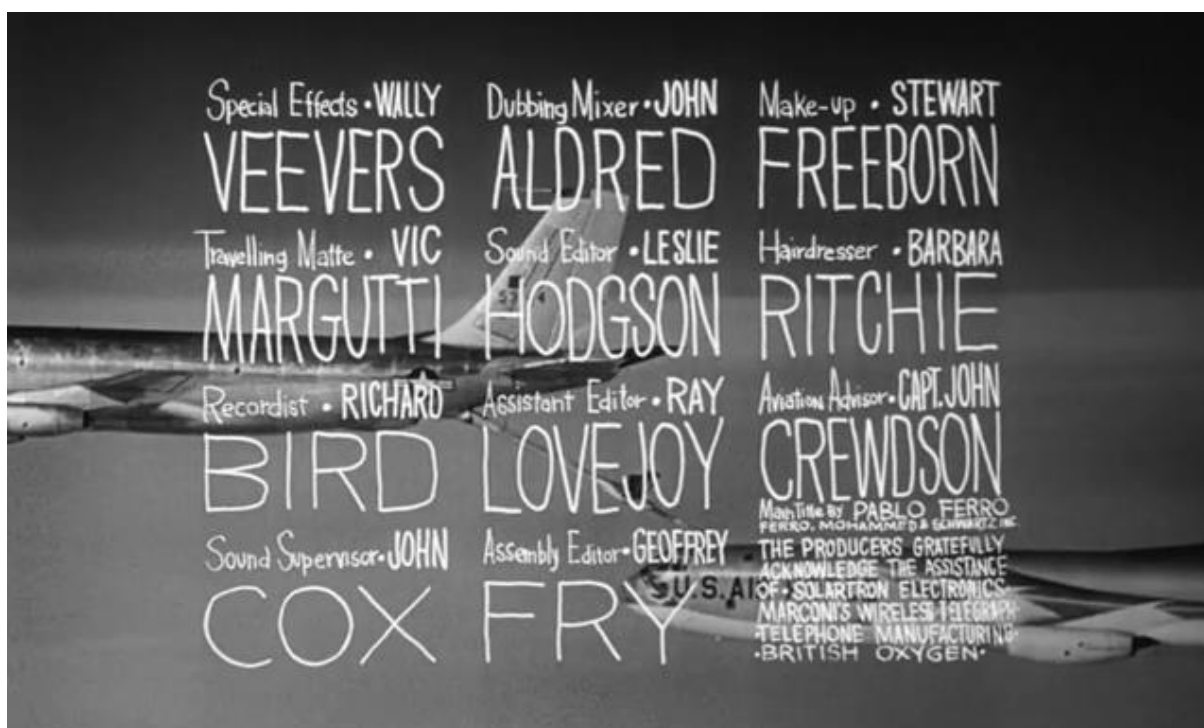 Special Effects • WALLY
VEEVERS
Travelling Matte • VIC
MARGUTTI
Recordist • RICHARD
BIRD
Sound Supervisor • JOHN
COX
Dubbing Mixer • JOHN
ALDRED
Sound Editor • LESLIE
HODGSON
Assistant Editor • RAY
LOVEJOY
Assembly Editor • GEOFFREY
FRY
Make-up • STEWART
FREEBORN
Hairdresser • BARBARA
RITCHIE
Aviation Advisor • CAPT. JOHN
CREWDSON
Main Title By PABLO FERRO
FERRO, MOHAMMED & SCHWARTZ INC.
THE PRODUCERS GRATEFULLY
ACKNOWLEDGE THE ASSISTANCE
OF • SOLARTRON ELECTRONICS •
MARCONI'S WIRELESS TELEGRAPH •
• TELEPHONE MANUFACTURING •
• BRITISH OXYGEN •
U.S. AI